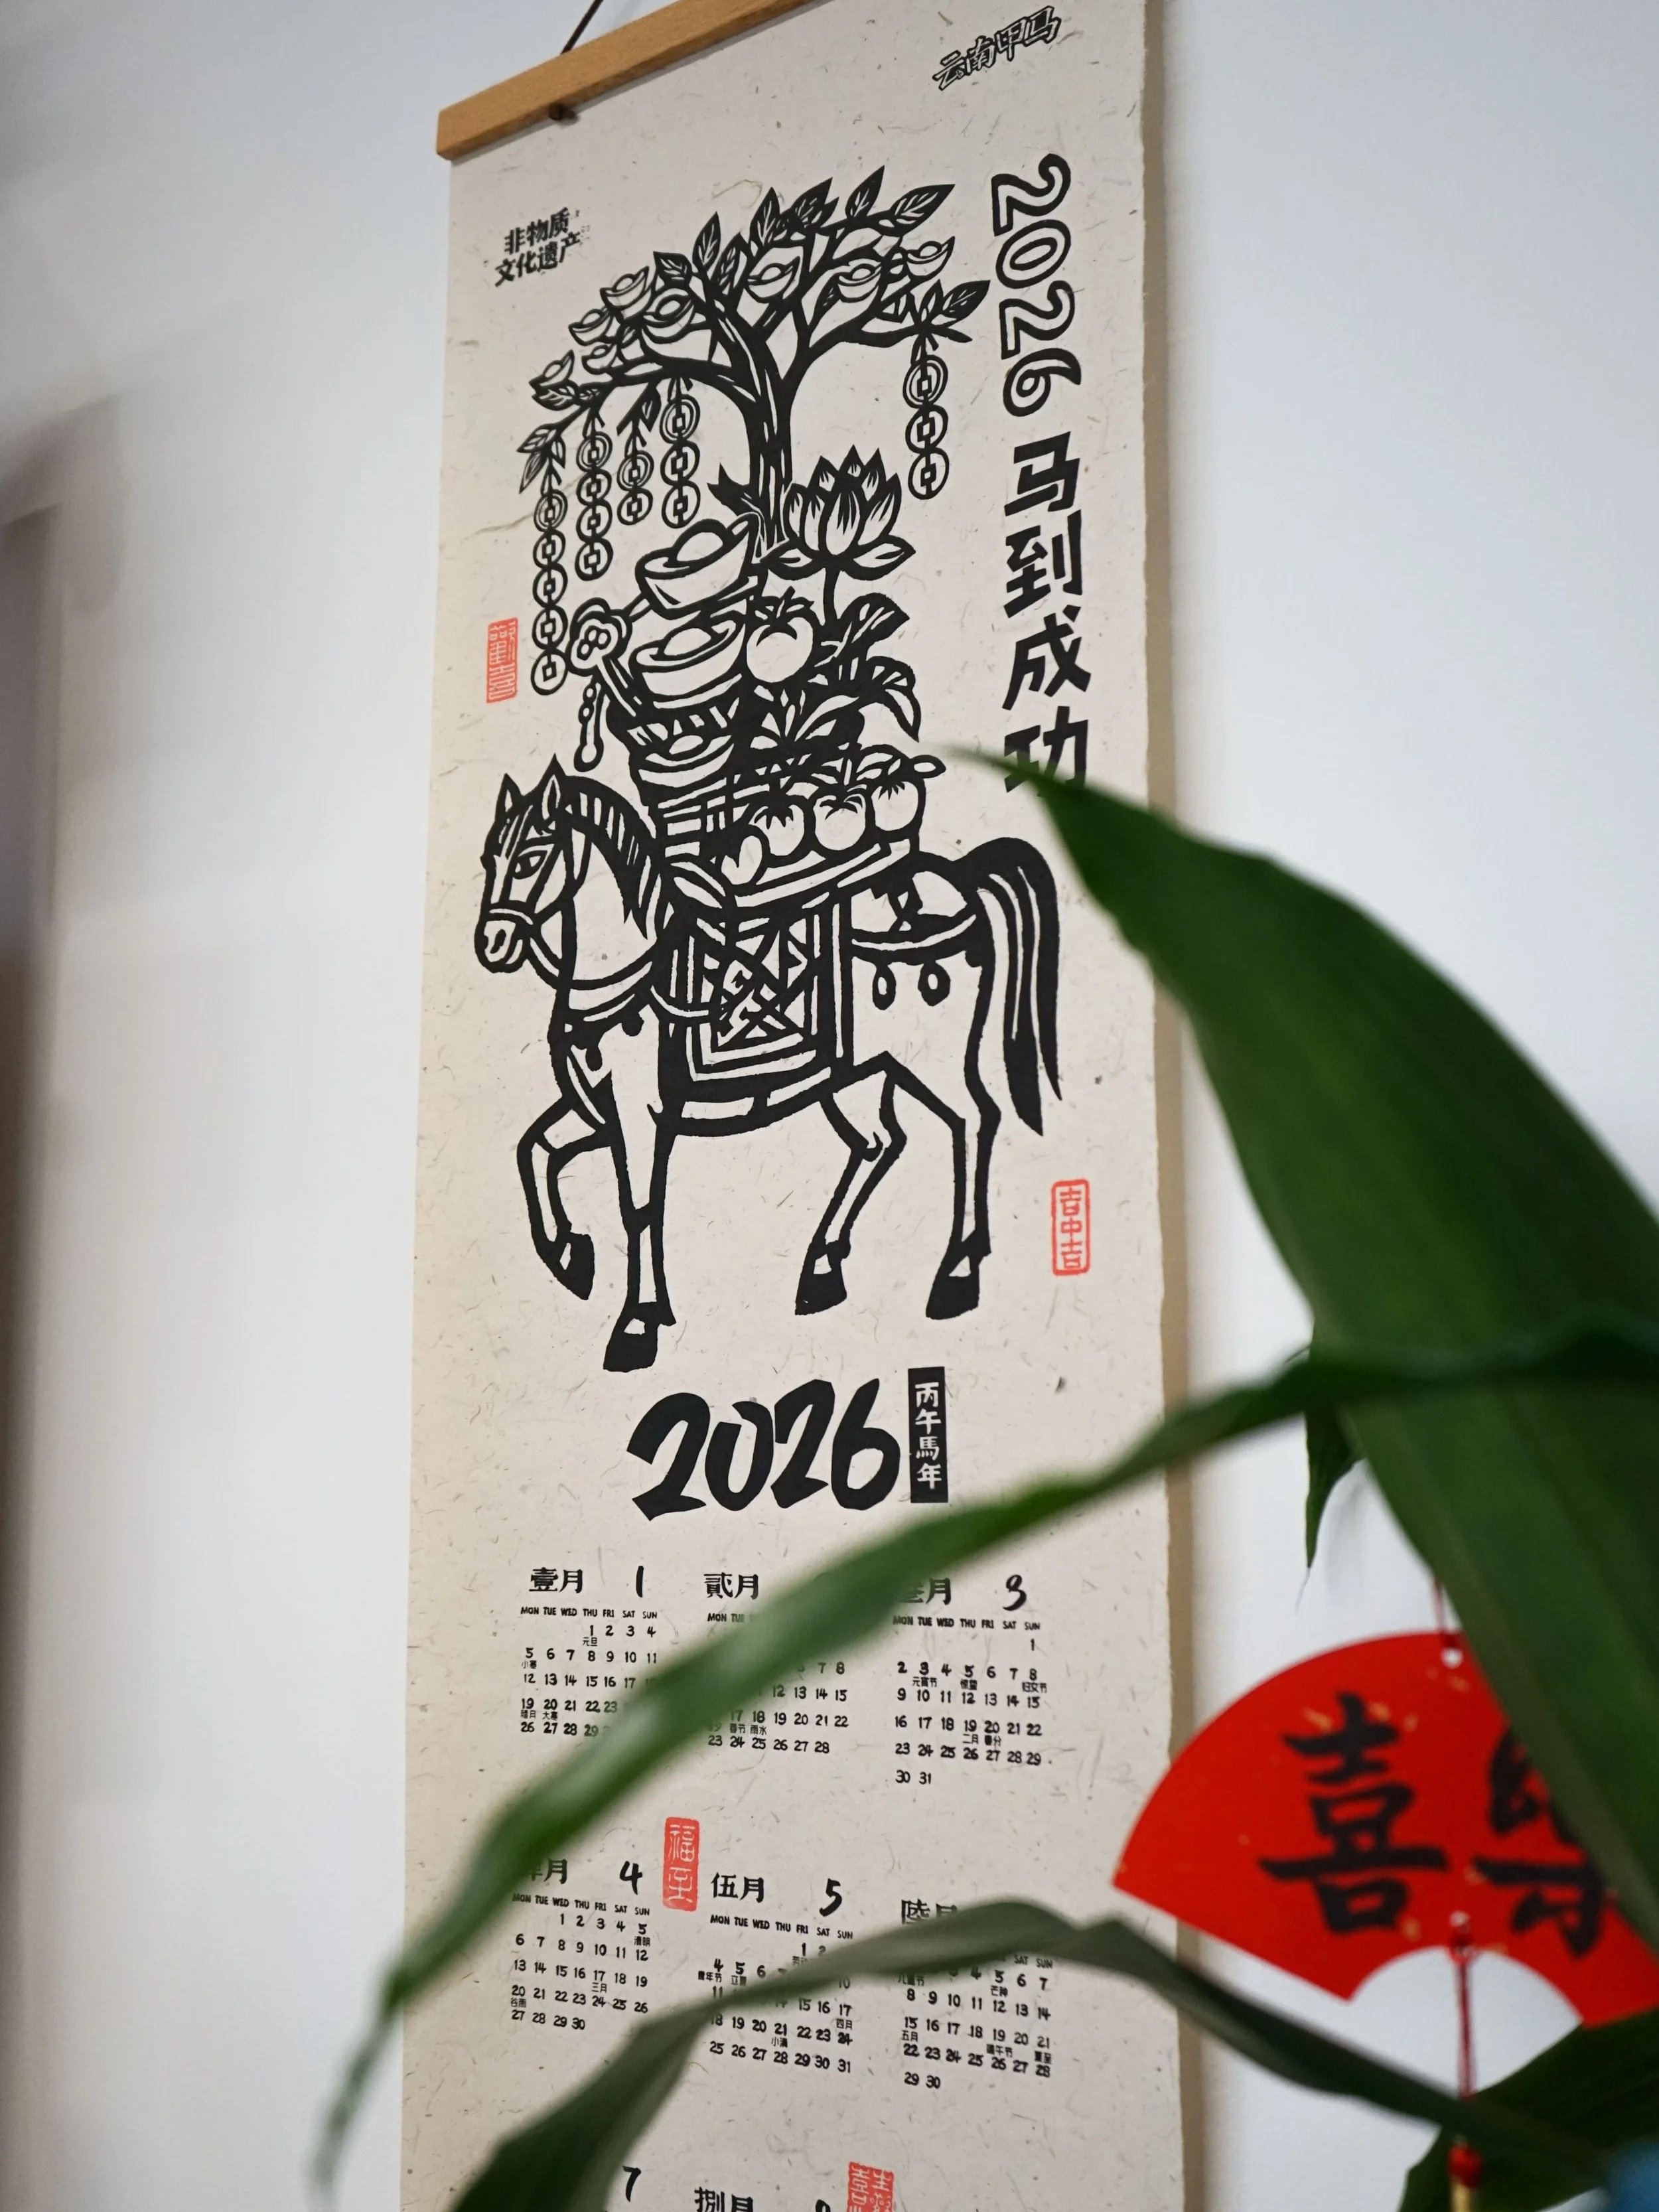 云南甲马
非物质
文化遗产
2026 马到成功
吉中吉
2026
丙午馬年
壹月 1
MON TUE WED THU FRI SAT SUN
1 2 3 4
元旦
5 6 7 8 9 10 11
小寒
12 13 14 15 16 17
19 20 21 22 23
腊月 大寒
26 27 28 29
貳月
MON TUE
7 8
12 13 14 15
17 18 19 20 21 22
春节 雨水
23 24 25 26 27 28
叁月 3
MON TUE WED THU FRI SAT SUN
1
2 3 4 5 6 7 8
元宵节 惊蛰 妇女节
9 10 11 12 13 14 15
16 17 18 19 20 21 22
二月 春分
23 24 25 26 27 28 29
30 31
福至
月 4
MON TUE WED THU FRI SAT SUN
1 2 3 4 5
清明
6 7 8 9 10 11 12
13 14 15 16 17 18 19
三月
20 21 22 23 24 25 26
谷雨
27 28 29 30
伍月 5
MON TUE WED THU FRI SAT SUN
1 2
4 5 6 10
青年节 立夏
11 14 15 16 17
四月
18 19 20 21 22 23 24
小满
25 26 27 28 29 30 31
陸月
SAT SUN
4 5 6 7
儿童节 芒种
8 9 10 11 12 13 14
15 16 17 18 19 20 21
五月 端午节 夏至
22 23 24 25 26 27 28
29 30
7
捌月
喜